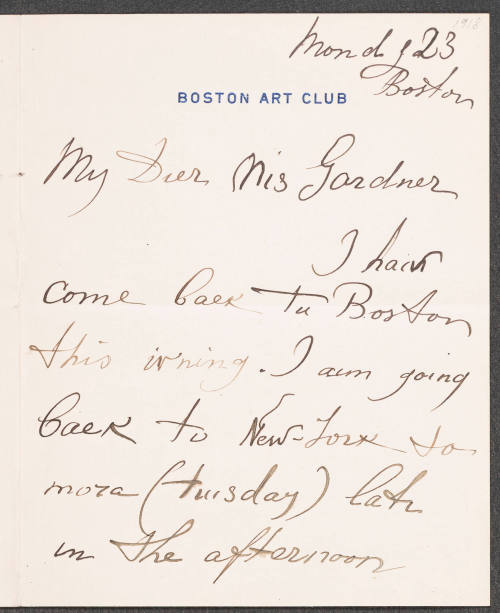 1918
Mondy 23
Boston
BOSTON ART CLUB
My Dier Mis Gardner
I hair
come baek tu Boston
this ivning. I aum going
baek to New-York to
mora (tuisday) late
in the afternoon